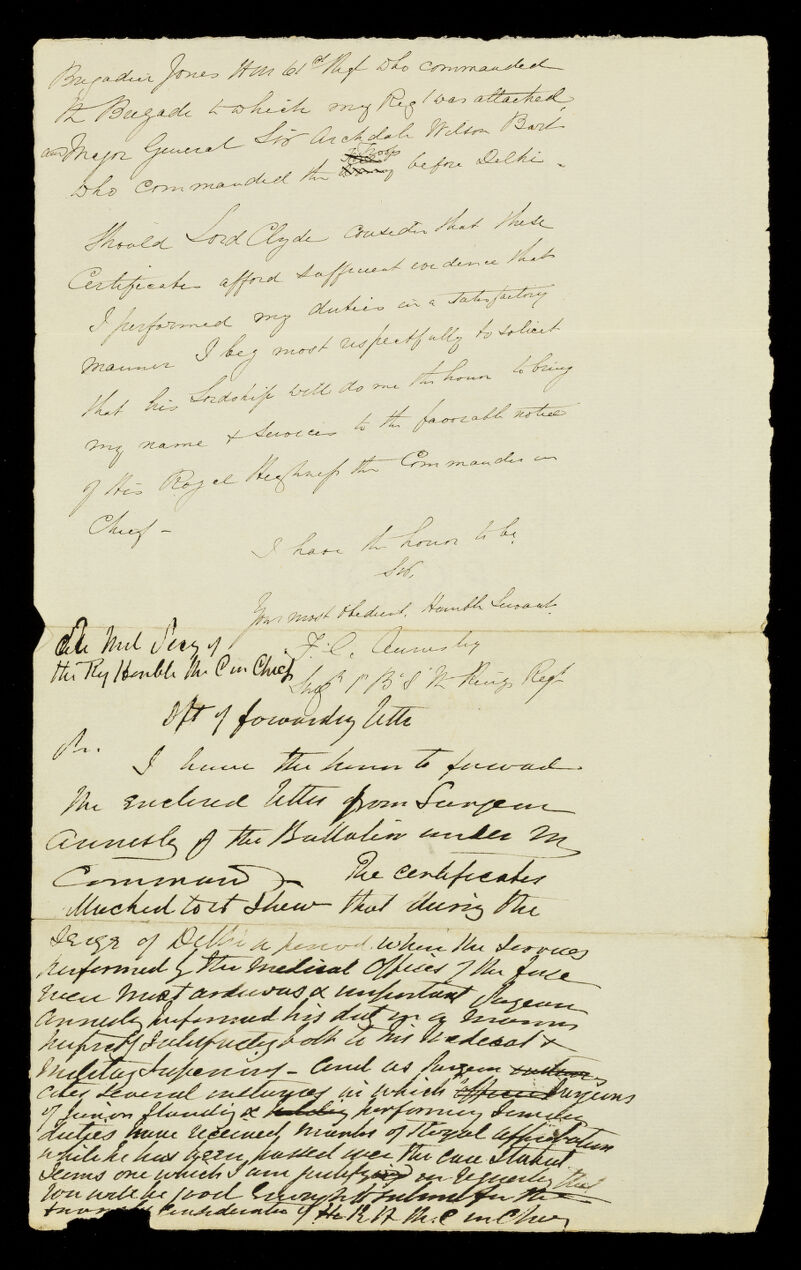 Brigadier Jones HM 61st Regt who commanded
the Brigade to which my Regt was attached,
and Major General Sir Archdale Wilson Bart
who commanded the Troops before Delhi -
Should Lord Clyde consider that these
Certificates afford sufficient evidence that
I performed my duties in a satisfactory
manner I beg most respectfully to solicit
that his Lordship will do me the honor to bring
my name & services to the favorable notice
of His Royal Highness the Commander in
Chief -
I have the honor to be,
Sir,
Your most obedient, Humble Servant.
F. C. Annesley
Surgn 1st Bn 8th The Kings Regt
The Mil Secy of
the Rt Honble the C in Chief
Dft of forwarding letter
Sir.
I have the honor to forward
the enclosed letter from Surgeon
Annesley of the Battalion under my
Command - The certificates
attached to it shew that during the
Seige of Delhi a period when the services
performed by the medical Officers of the force
were most arduous & important Surgeon
Annesley performed his duty in a manner
satisfactory both to his medical &
Military Superiors - and as Surgeon
cites several instances in which Surgeons
of Junior Standing & performing similar
duties have received marks of Royal approbation
while he has been passed over the case
seems one which I am justified in requesting that
you will be good enough to submit for the
favorable consideration of H R H the C in Chief